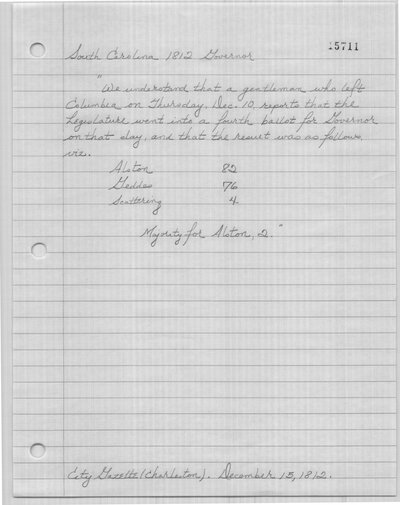 South Carolina 1812 Governor
15711
"We understand that a gentleman who left
Columbia on Thursday, Dec. 10, reports that the
Legislature went into a fourth ballot for Governor
on that day, and that the result was as follows,
viz.
Alston 82
Geddes 76
Scattering 4
Majority for Alston, 2."
City Gazette (Charleston). December 15, 1812.